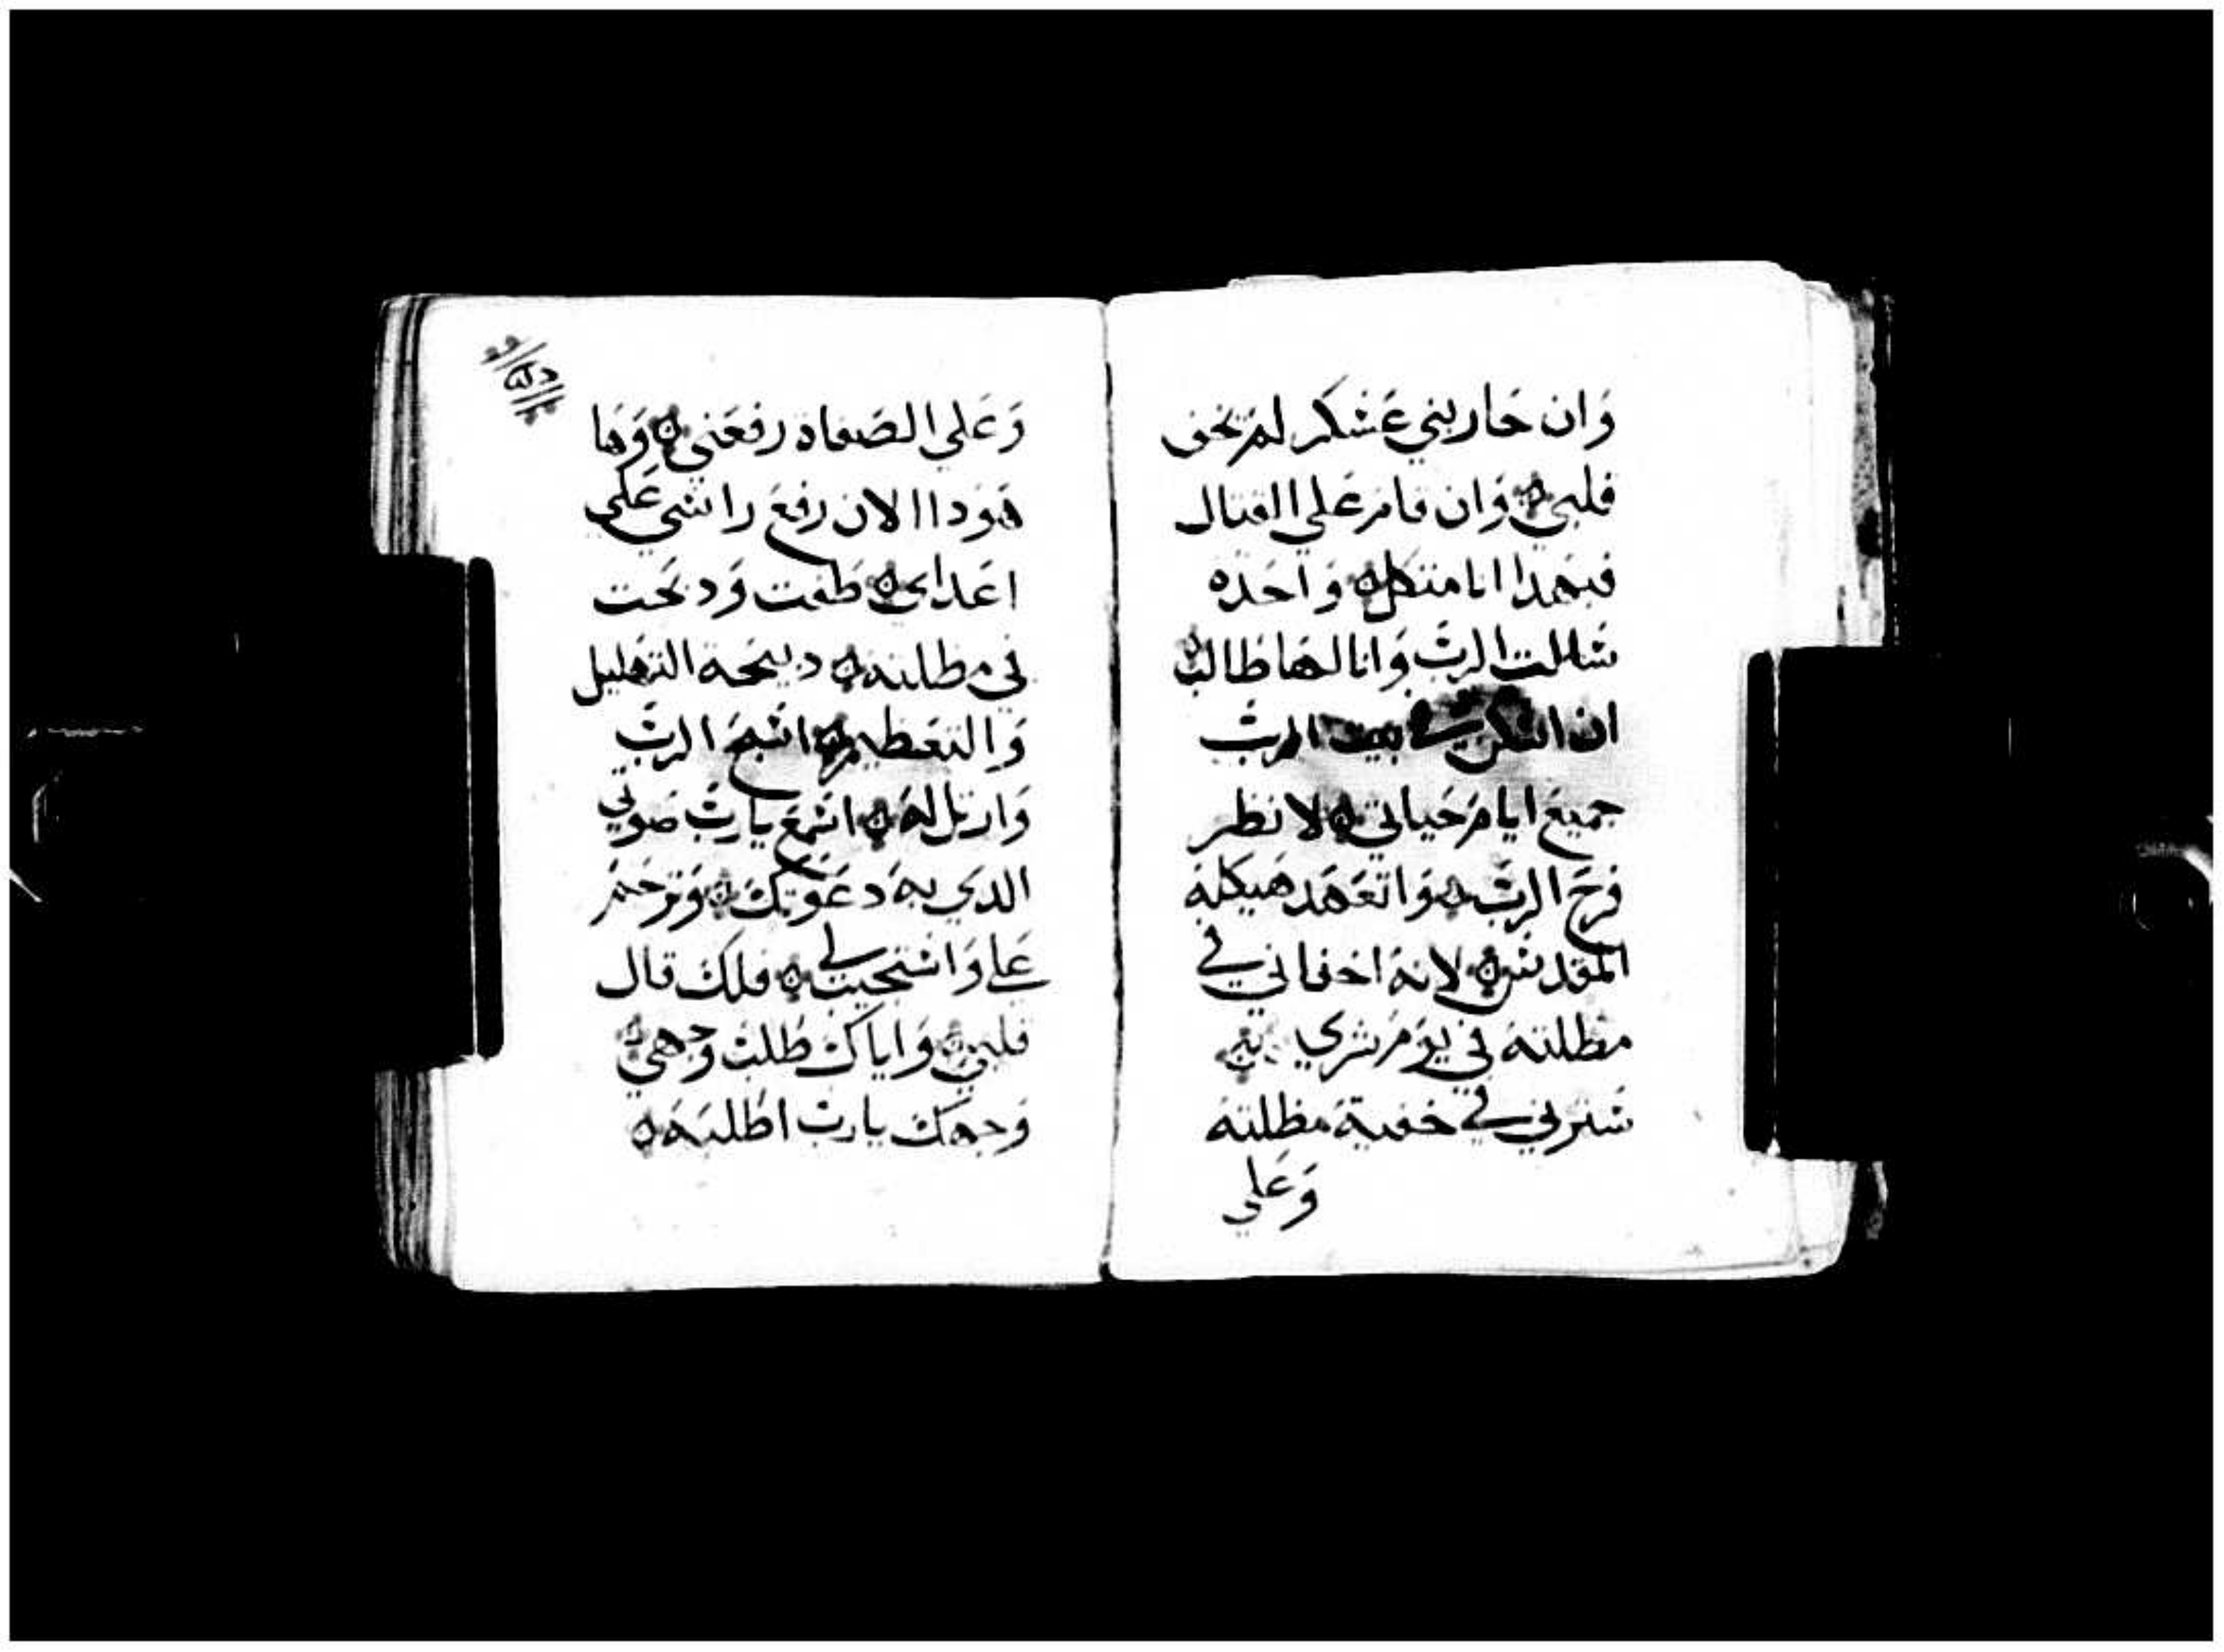 وان حاربني عسكر لم يخف
قلبي وان قام علي القتال
فبهدا انا متكل واحده
سالت الرب وانا لها طالب
ان اسكن في بيت الرب
جميع ايام حياتي لانظر
فرح الرب واتعهد هيكله
المقدس لانه اخفاني في
مظلته في يوم شري
سترني في خفية مظلته
وعلي
وعلي الصفاة رفعني وها
هودا الان رفع راسي علي
اعداي طفت ودبحت
في مظلته دبيحة التهليل
والتعظيم اسبح الرب
وارتل له اسمع يارب صوتي
الدي به دعوتك وترحم
علي واستجيب لي فلك قال
قلبي واياك طلب وجهي
وجهك يارب اطلبه